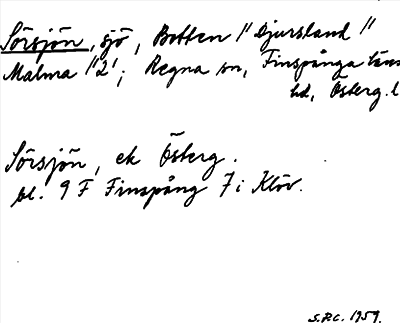 Sörsjön, sjö, Botten 1/1 Djursland 1/1
Malma 1/2 ; Regna sn, Finspånga läns
hd, Österg. l
Sörsjön, ek Österg.
bl. 9 F Finspång 7 i Klöv.
S.P.C. 1959.